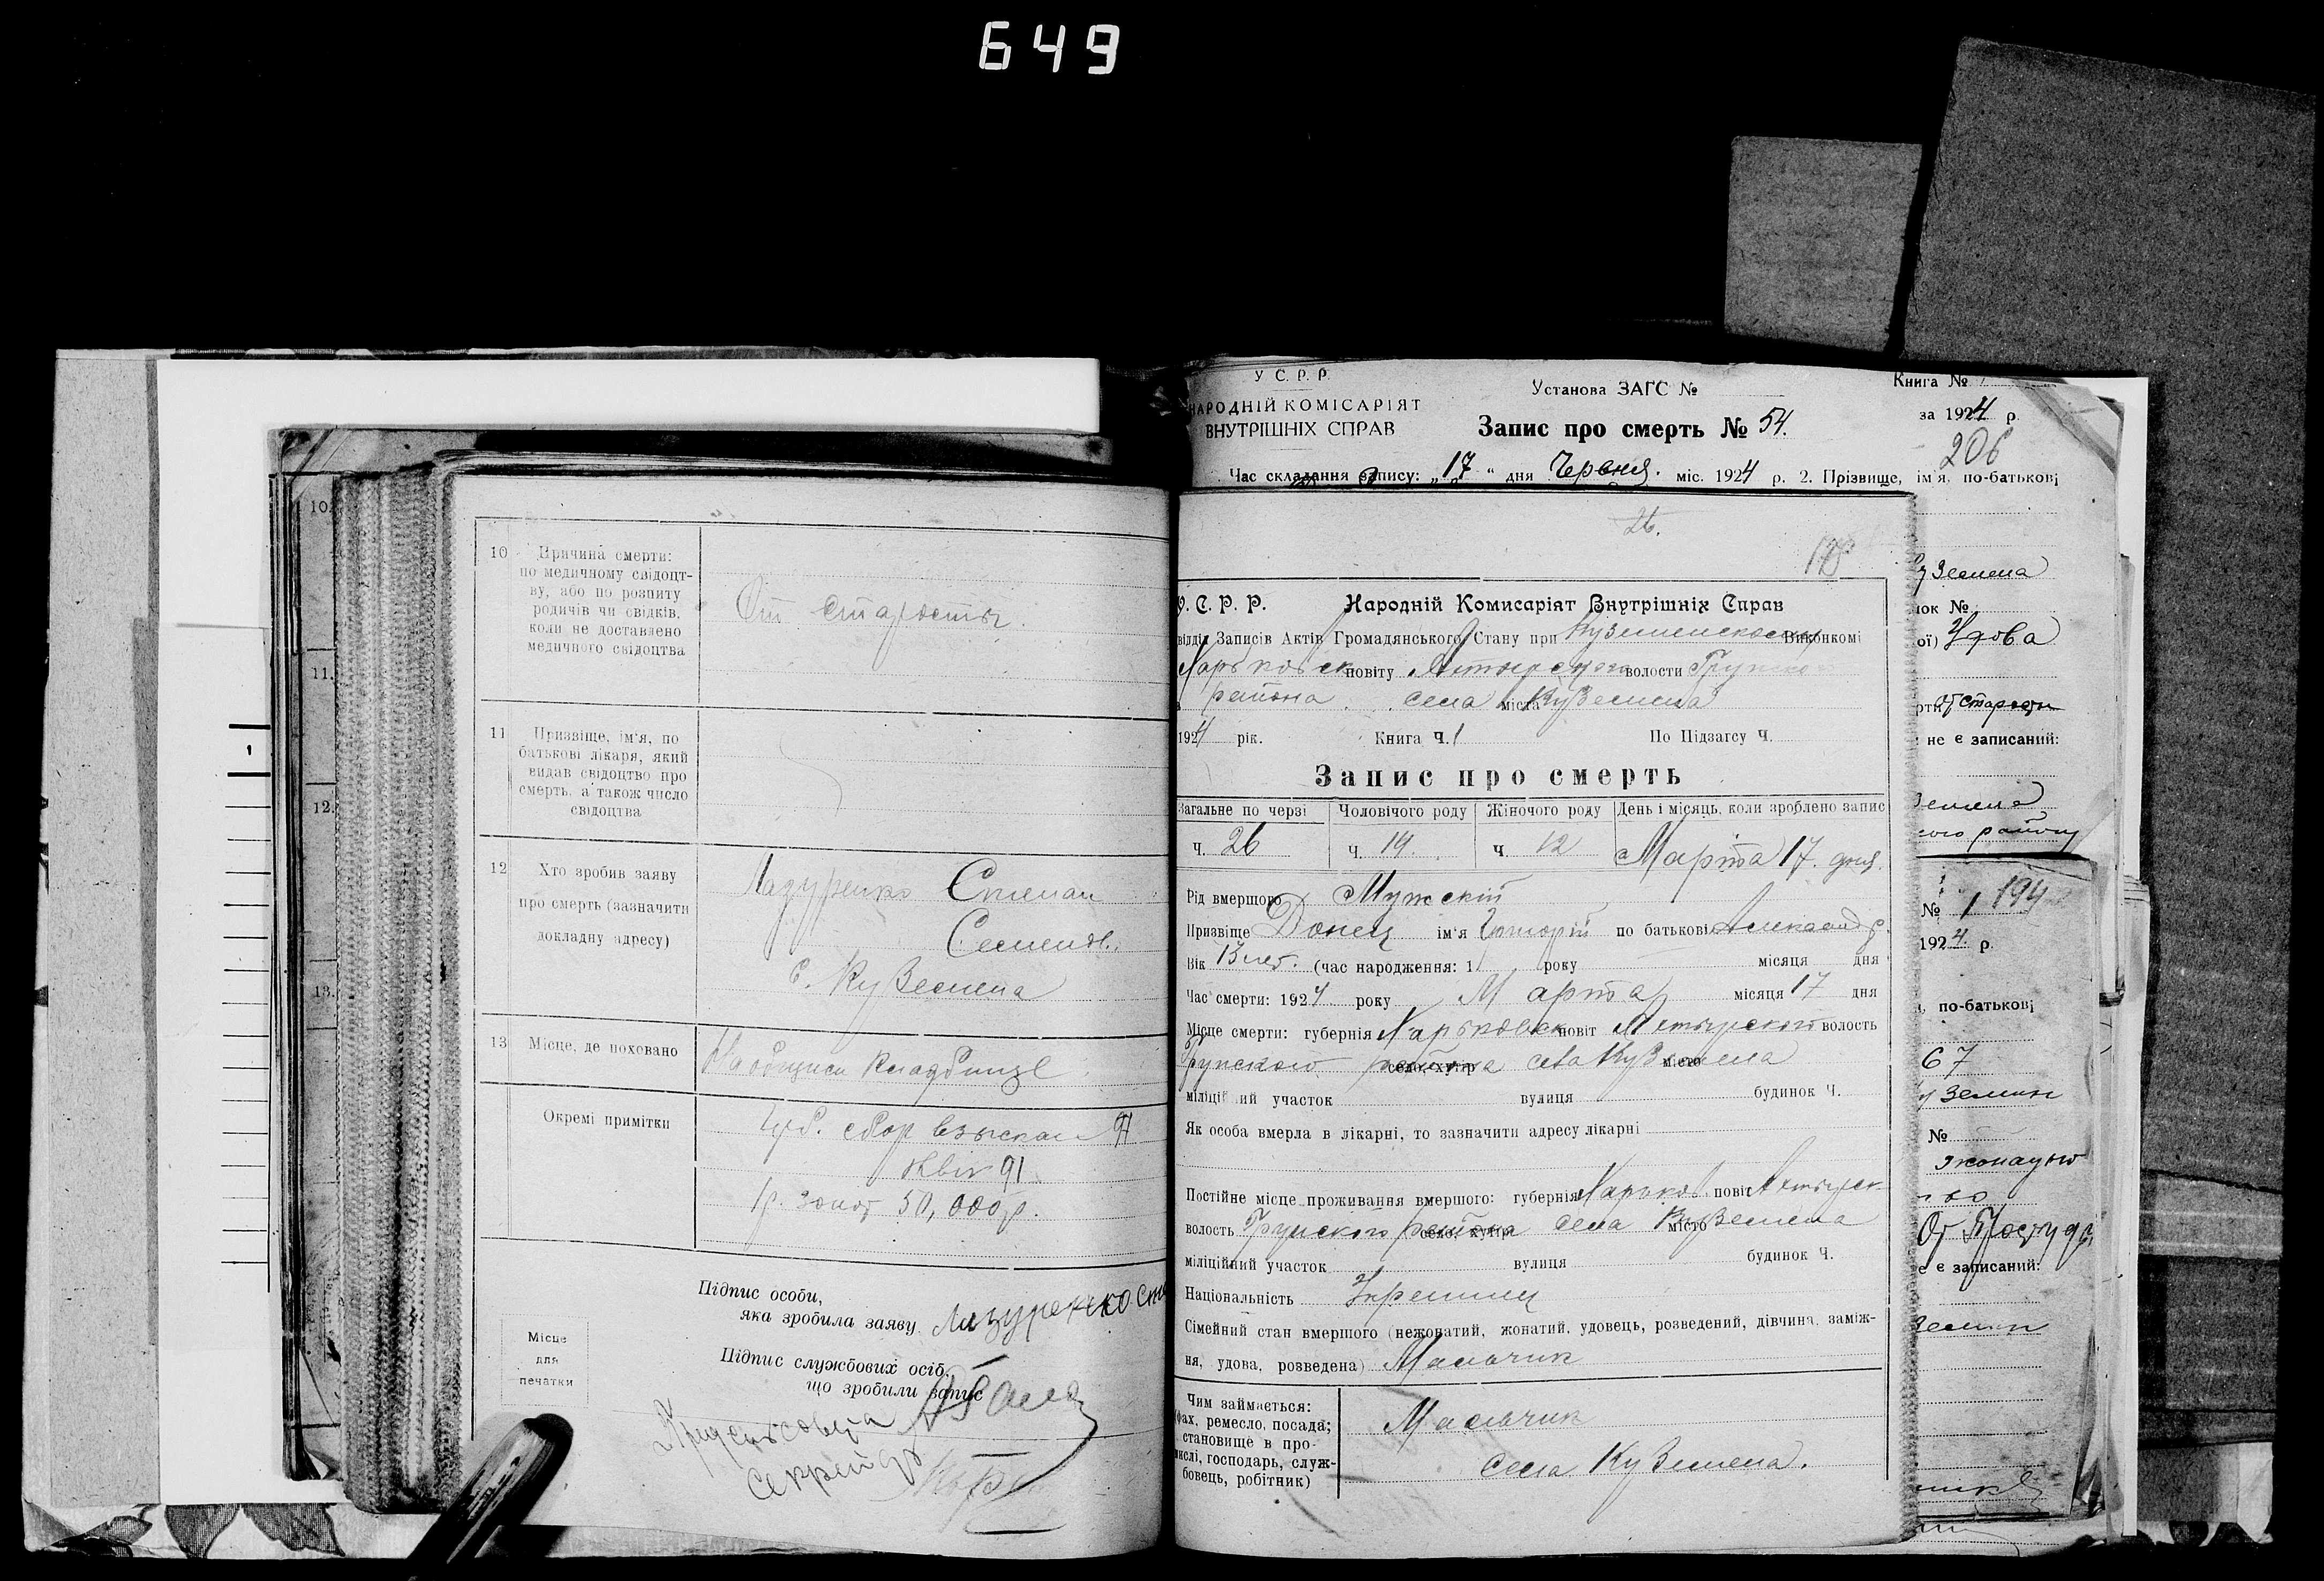 649
10
Причина смерти:
по медичному свідоцт-
ву, або по розпиту
родичів чи свідків,
коли не доставлено
медичного свідоцтва
От старости.
11
Призвіще, ім'я, по
батькові лікаря, який
видав свідоцтво про
смерть, а також число
свідоцтва
12
Хто зробив заяву
про смерть (зазначити
докладну адресу)
Лазуренко Степан
Семенов.
с. Куземена
13
Місце, де поховано
На общем кладбище
Окремі примітки
сбор взыскан 91
квит 91
1 р. золот 50,000 р.
Підпис особи,
яка зробила заяву Лазуренко
Місце
для
печатки
Підпис службових осіб,
що зробили запис
секретар
10.
11.
12.
13.
У С. Р. Р.
НАРОДНІЙ КОМІСАРІЯТ
ВНУТРІШНІХ СПРАВ
Установа ЗАГС №
Книга №
Запис про смерть № 54.
за 1924 р.
206
Час складання запису: „17“ дня Червня. міс. 1924 р. 2. Прізвище, ім'я, по-батькові
26.
У. С. Р. Р. Народній Комисаріят Внутрішніх Справ
відділ Записів Актів Громадянського Стану при Куземенском Виконкомі
Харьковск повіту Ахтырского волости Грунско
района села міста Куземена
1924 рік. Книга Ч. 1 По Підзагсу Ч.
Запис про смерть
Загальне по черзі Чоловічого роду Жіночого роду День і місяць, коли зроблено запис
ч. 26 ч. 14 ч 12 Марта 17. дня.
Рід вмершого Мужскій
Призвіще Донец ім'я по батькові Александр.
Вік 13 лет. (час народження: 1 року місяця дня
Час смерти: 1924 року Марта місяця 17 дня
Місце смерти: губернія Харьковск повіт Ахтырского волость
Грунского района село, хутір села Куземена місто
міліційний участок вулиця будинок Ч.
Як особа вмерла в лікарні, то зазначити адресу лікарні
Постійне місце проживання вмершого: губернія Харьков. повіт Ахтырск
волость Грунского района село, хутір села Куземена місто
міліційний участок вулиця будинок Ч.
Національність Украинец
Сімейний стан вмершого (нежонатий, жонатий, удовець, розведений, дівчина, заміж-
ня, удова, розведена) Мальчик
Чим займається:
(фах, ремесло, посада;
становище в про-
мислі, господарь, служ-
бовець, робітник)
Мальчик
села Куземена.
уземена
ок №
ої) Удова
рти От старости
не є записаний:
земена
ого району
194
№ 1
1924 р.
по-батькові
67
уземин
№
От Простуды
є записаний:
земин